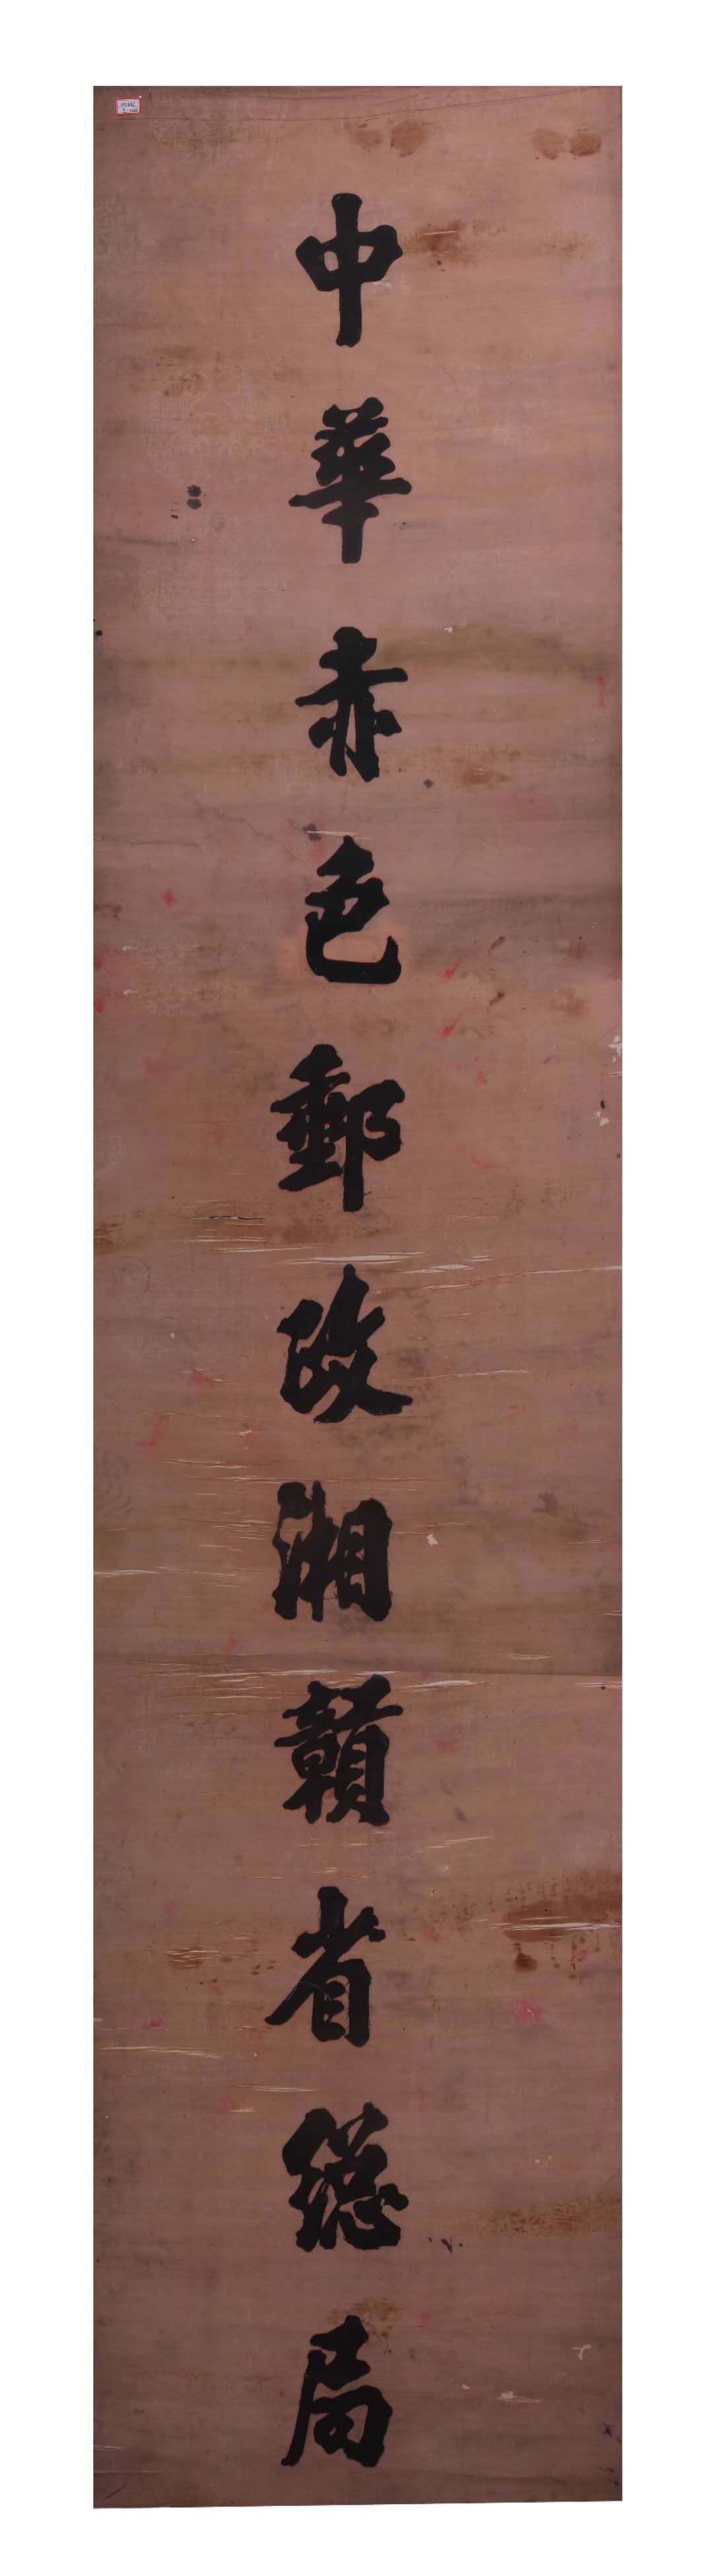 中華赤色郵政湘贛省總局